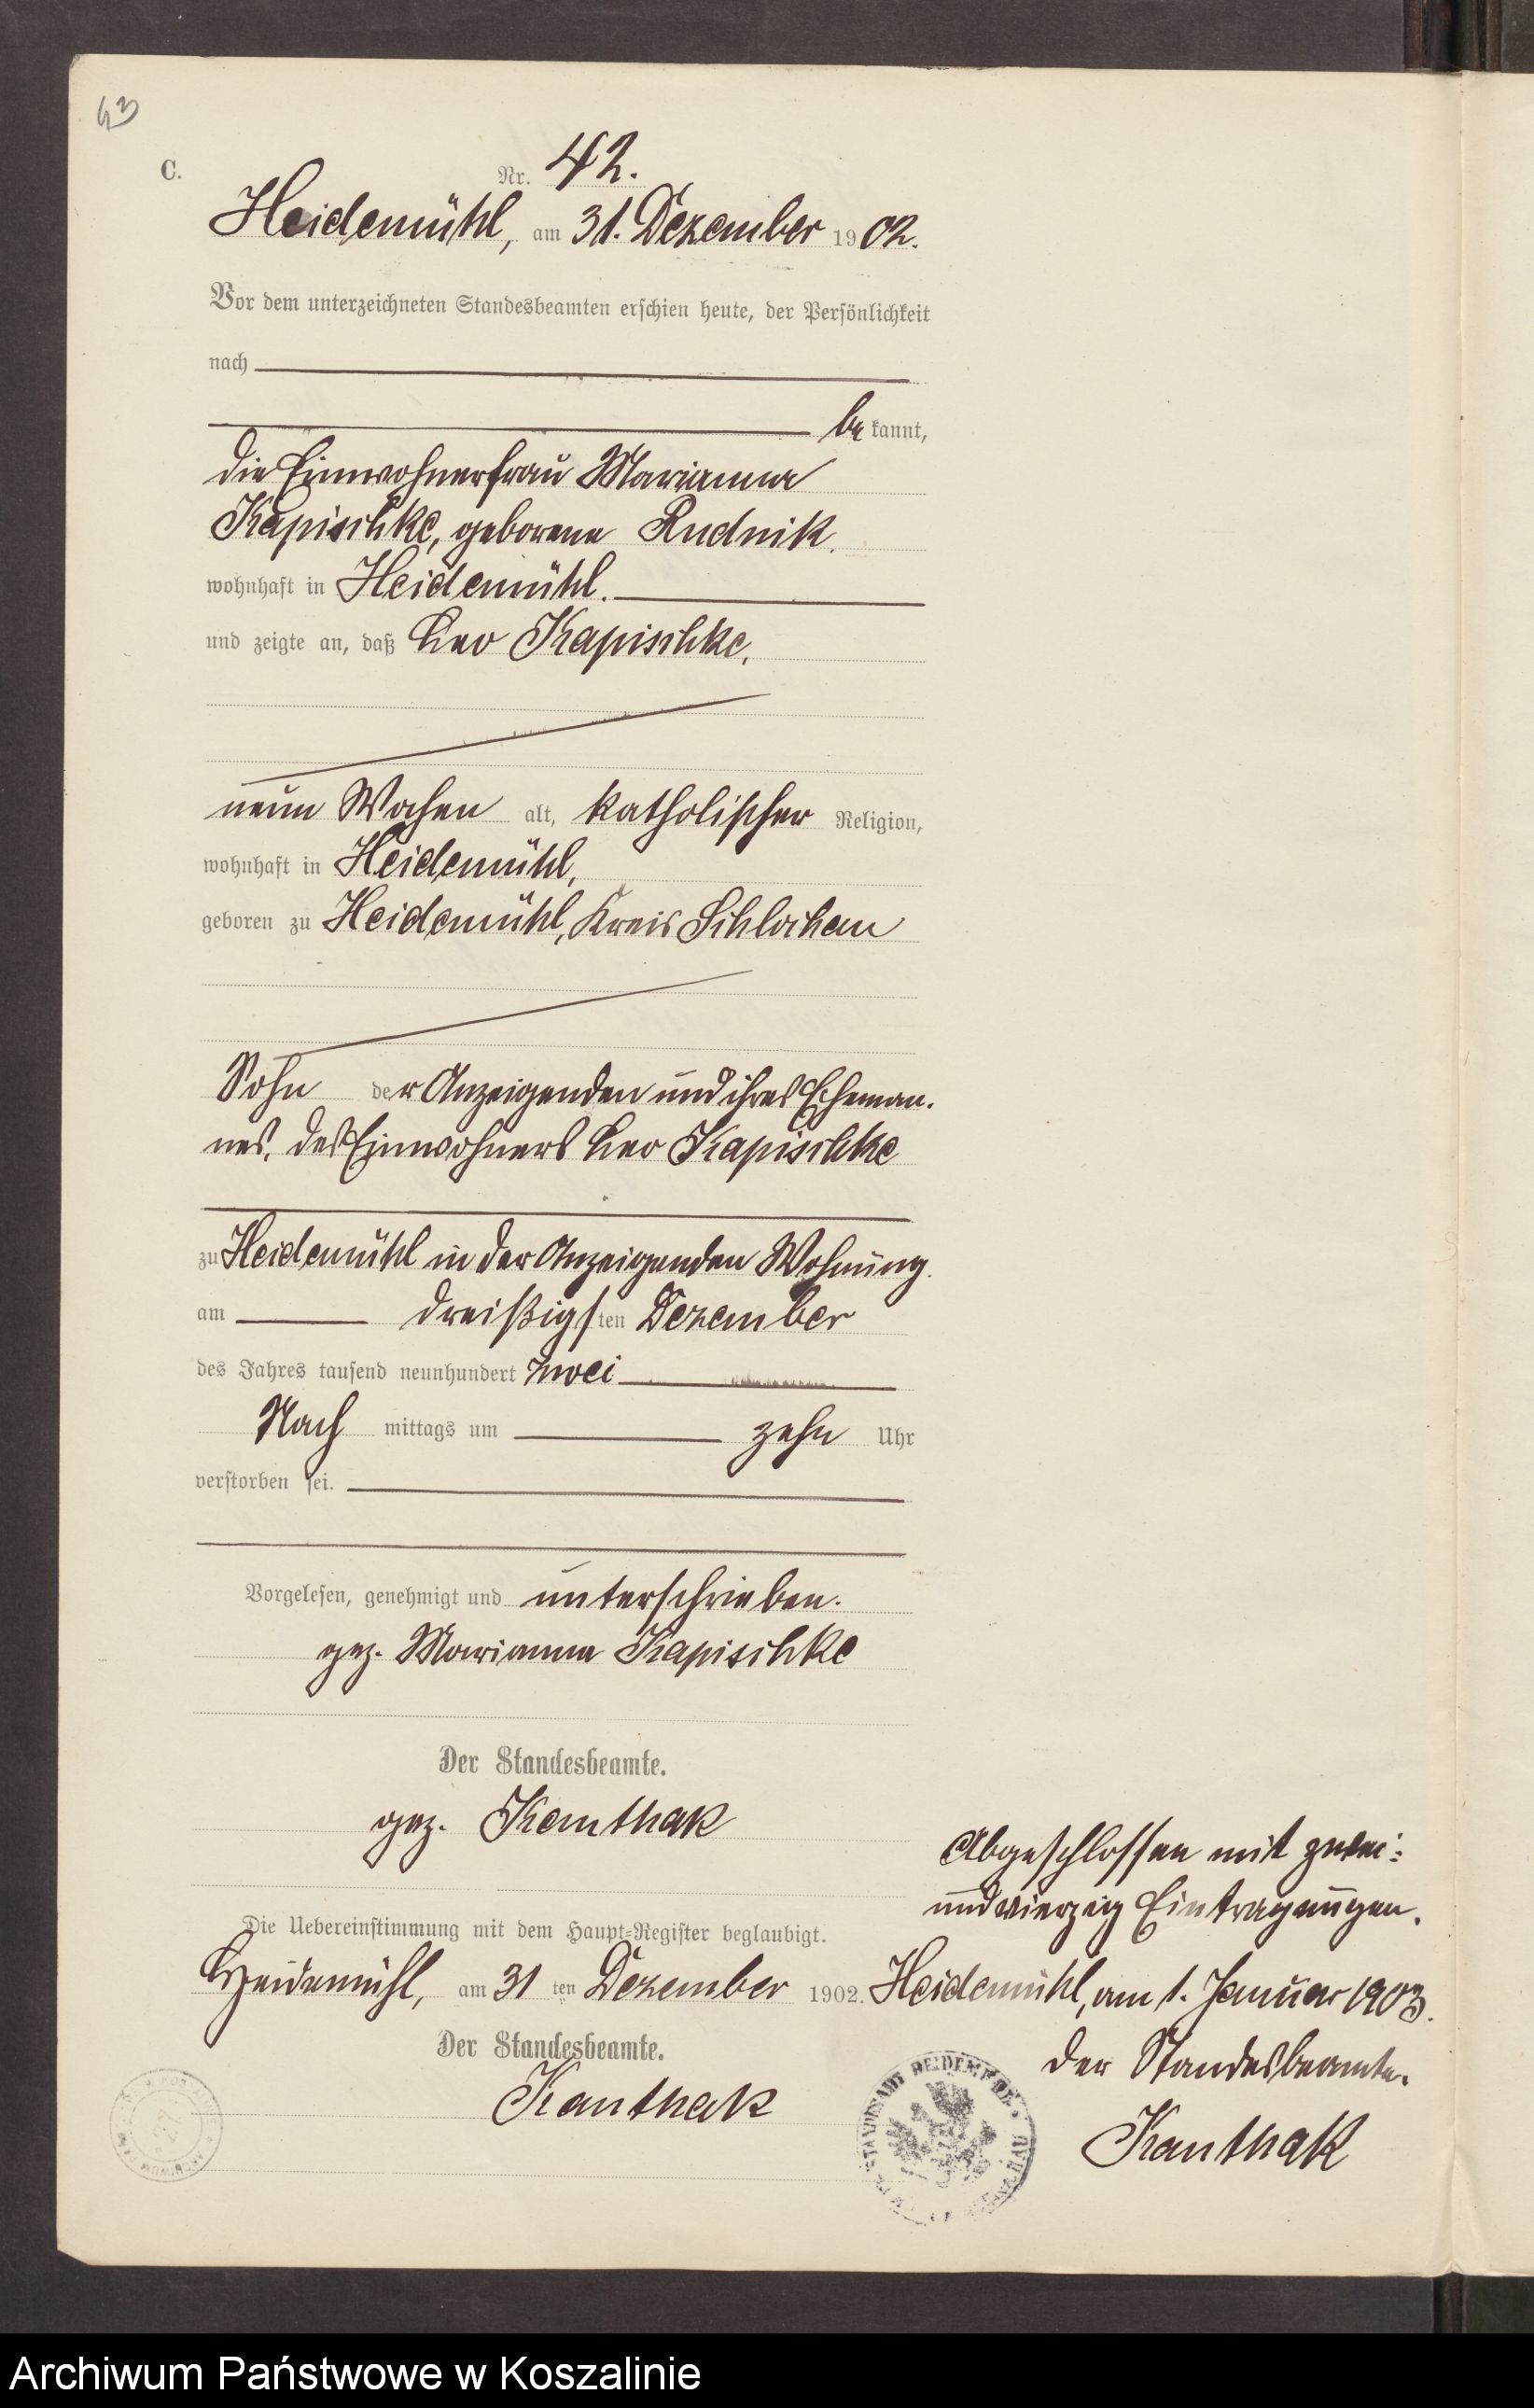 43
C.
Nr. 42.
Heidemühl, am 31. Dezember 1902.
Vor dem unterzeichneten Standesbeamten erschien heute, der Persönlichkeit
nach
bekannt,
die Einwohnerfrau Marianna
Kapischke, geborene Rudnik.
wohnhaft in Heidemühl.
und zeigte an, daß Leo Kapischke,
neun Wochen alt, katholischer Religion,
wohnhaft in Heidemühl,
geboren zu Heidemühl, Kreis Schlochau
Sohn der Anzeigenden und ihres Eheman-
nes, des Einwohners Leo Kapischke
zu Heidemühl in der Anzeigenden Wohnung.
am dreißigsten Dezember
des Jahres tausend neunhundert zwei
Nachmittags um zehn Uhr
verstorben sei.
Vorgelesen, genehmigt und unterschrieben.
gez. Marianna Kapischke
Der Standesbeamte.
gez. Kanthak
Abgeschlossen mit zwei-
undvierzig Eintragungen.
Die Uebereinstimmung mit dem Haupt-Register beglaubigt.
Heidemühl, am 31ten Dezember 1902.
Heidemühl, am 1. Januar 1903.
Der Standesbeamte.
Der Standesbeamte.
Kanthak
Kanthak
Archiwum Państwowe w Koszalinie